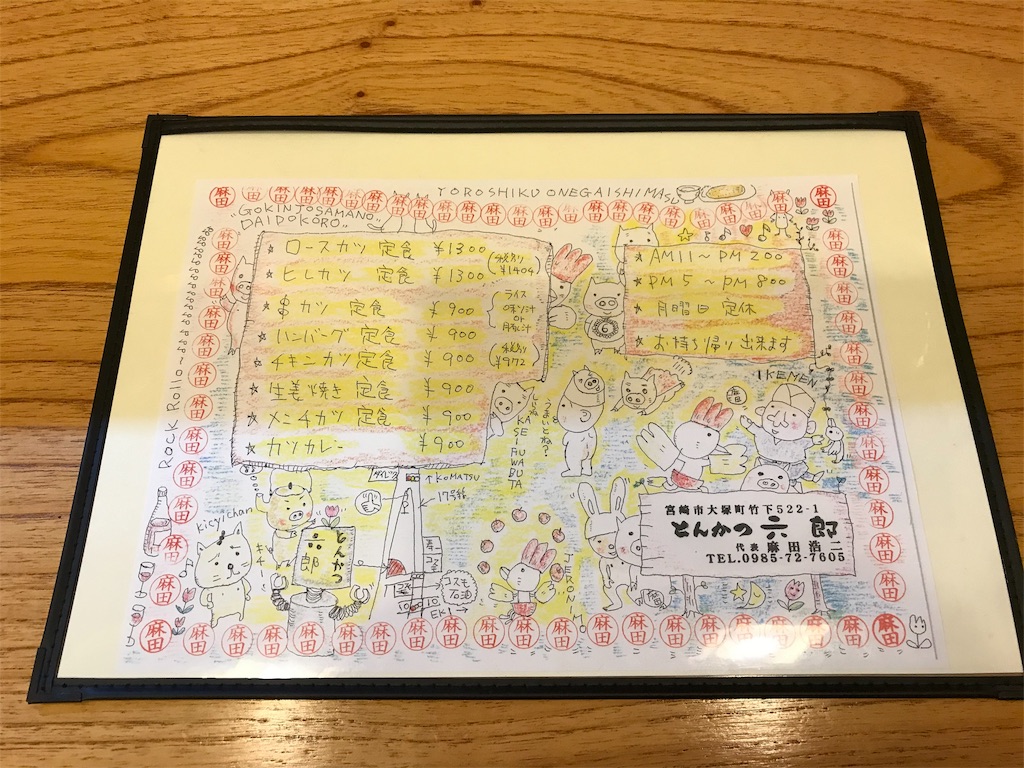 YOROSHIKU ONEGAISHIMASU
"GOKINJOSAMANO
DAIDOKORO"
☆ ロースカツ 定食 ¥1300
☆ ヒレカツ 定食 ¥1300
(税込り
¥1404)
☆ 串カツ 定食 ¥900
☆ ハンバーグ 定食 ¥900
☆ チキンカツ 定食 ¥900
☆ 生姜焼き 定食 ¥900
☆ メンチカツ 定食 ¥900
☆ カツカレー ¥900
ライス
or
¥972
☆ AM11〜PM 2:00
☆ PM 5〜PM 8:00
☆ 月曜日 定休
☆ お持ち帰り 出来ます
ROCK Rollo
IKEMEN
6
↑KOMATSU
17号線
kicyichan
キャー!
とんかつ
六郎
コスモ
石油
EKI→
JERONIMO
宮崎市大塚町竹下522-1
とんかつ 六郎
代表 麻田浩二
TEL.0985-72-7605
麻田